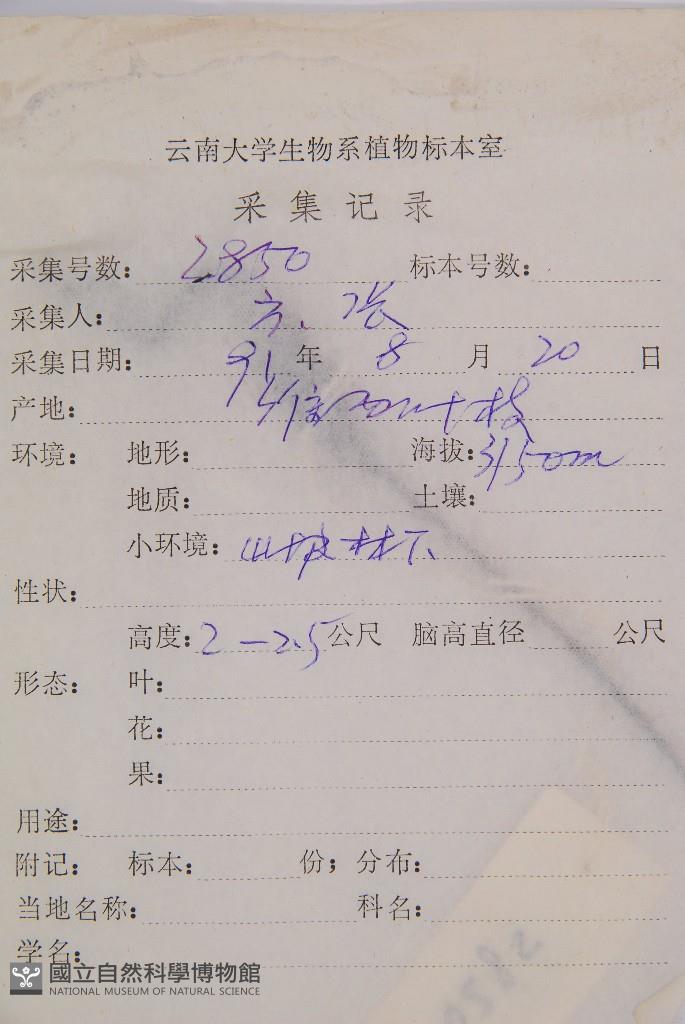 云南大学生物系植物标本室
采集记录
采集号数: 2850 标本号数:
采集人: 方、张
采集日期: 91年 8月 20日
产地:
环境: 地形: 海拔: 3150m
地质: 土壤:
小环境: 山坡林下
性状:
高度: 2—2.5公尺 脑高直径 公尺
形态: 叶:
花:
果:
用途:
附记: 标本: 份; 分布:
当地名称: 科名:
学名:
國立自然科學博物館
NATIONAL MUSEUM OF NATURAL SCIENCE